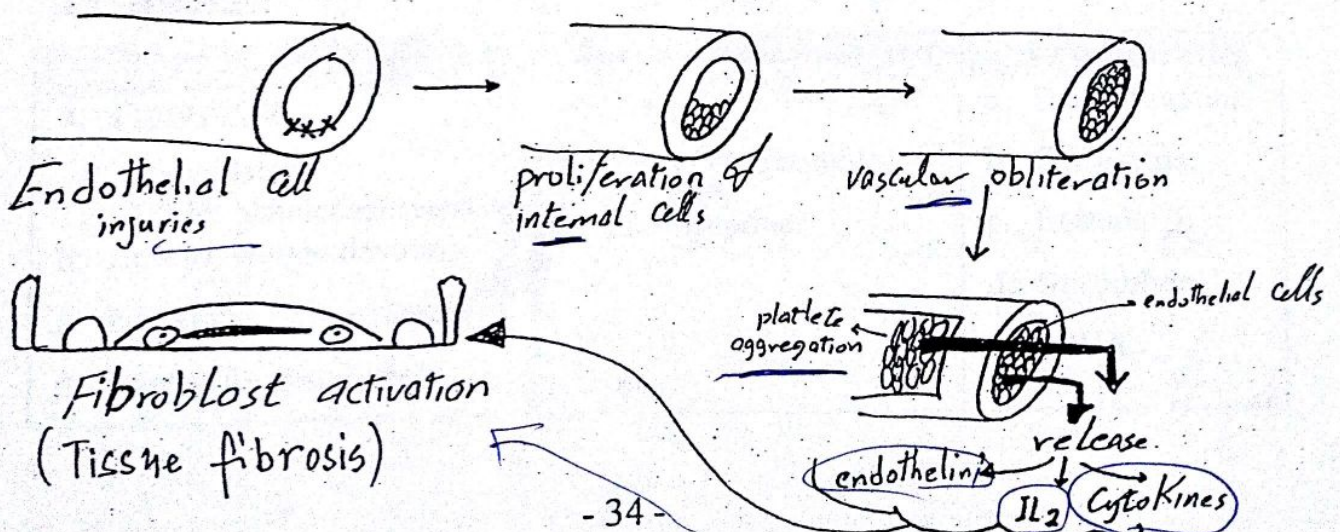 Endothelial cell
injuries
proliferation of
internal cells
vascular obliteration
endothelial cells
platlete
aggregation
release
endothelin
IL2
Cytokines
Fibroblost activation
(Tissue fibrosis)
- 34 -